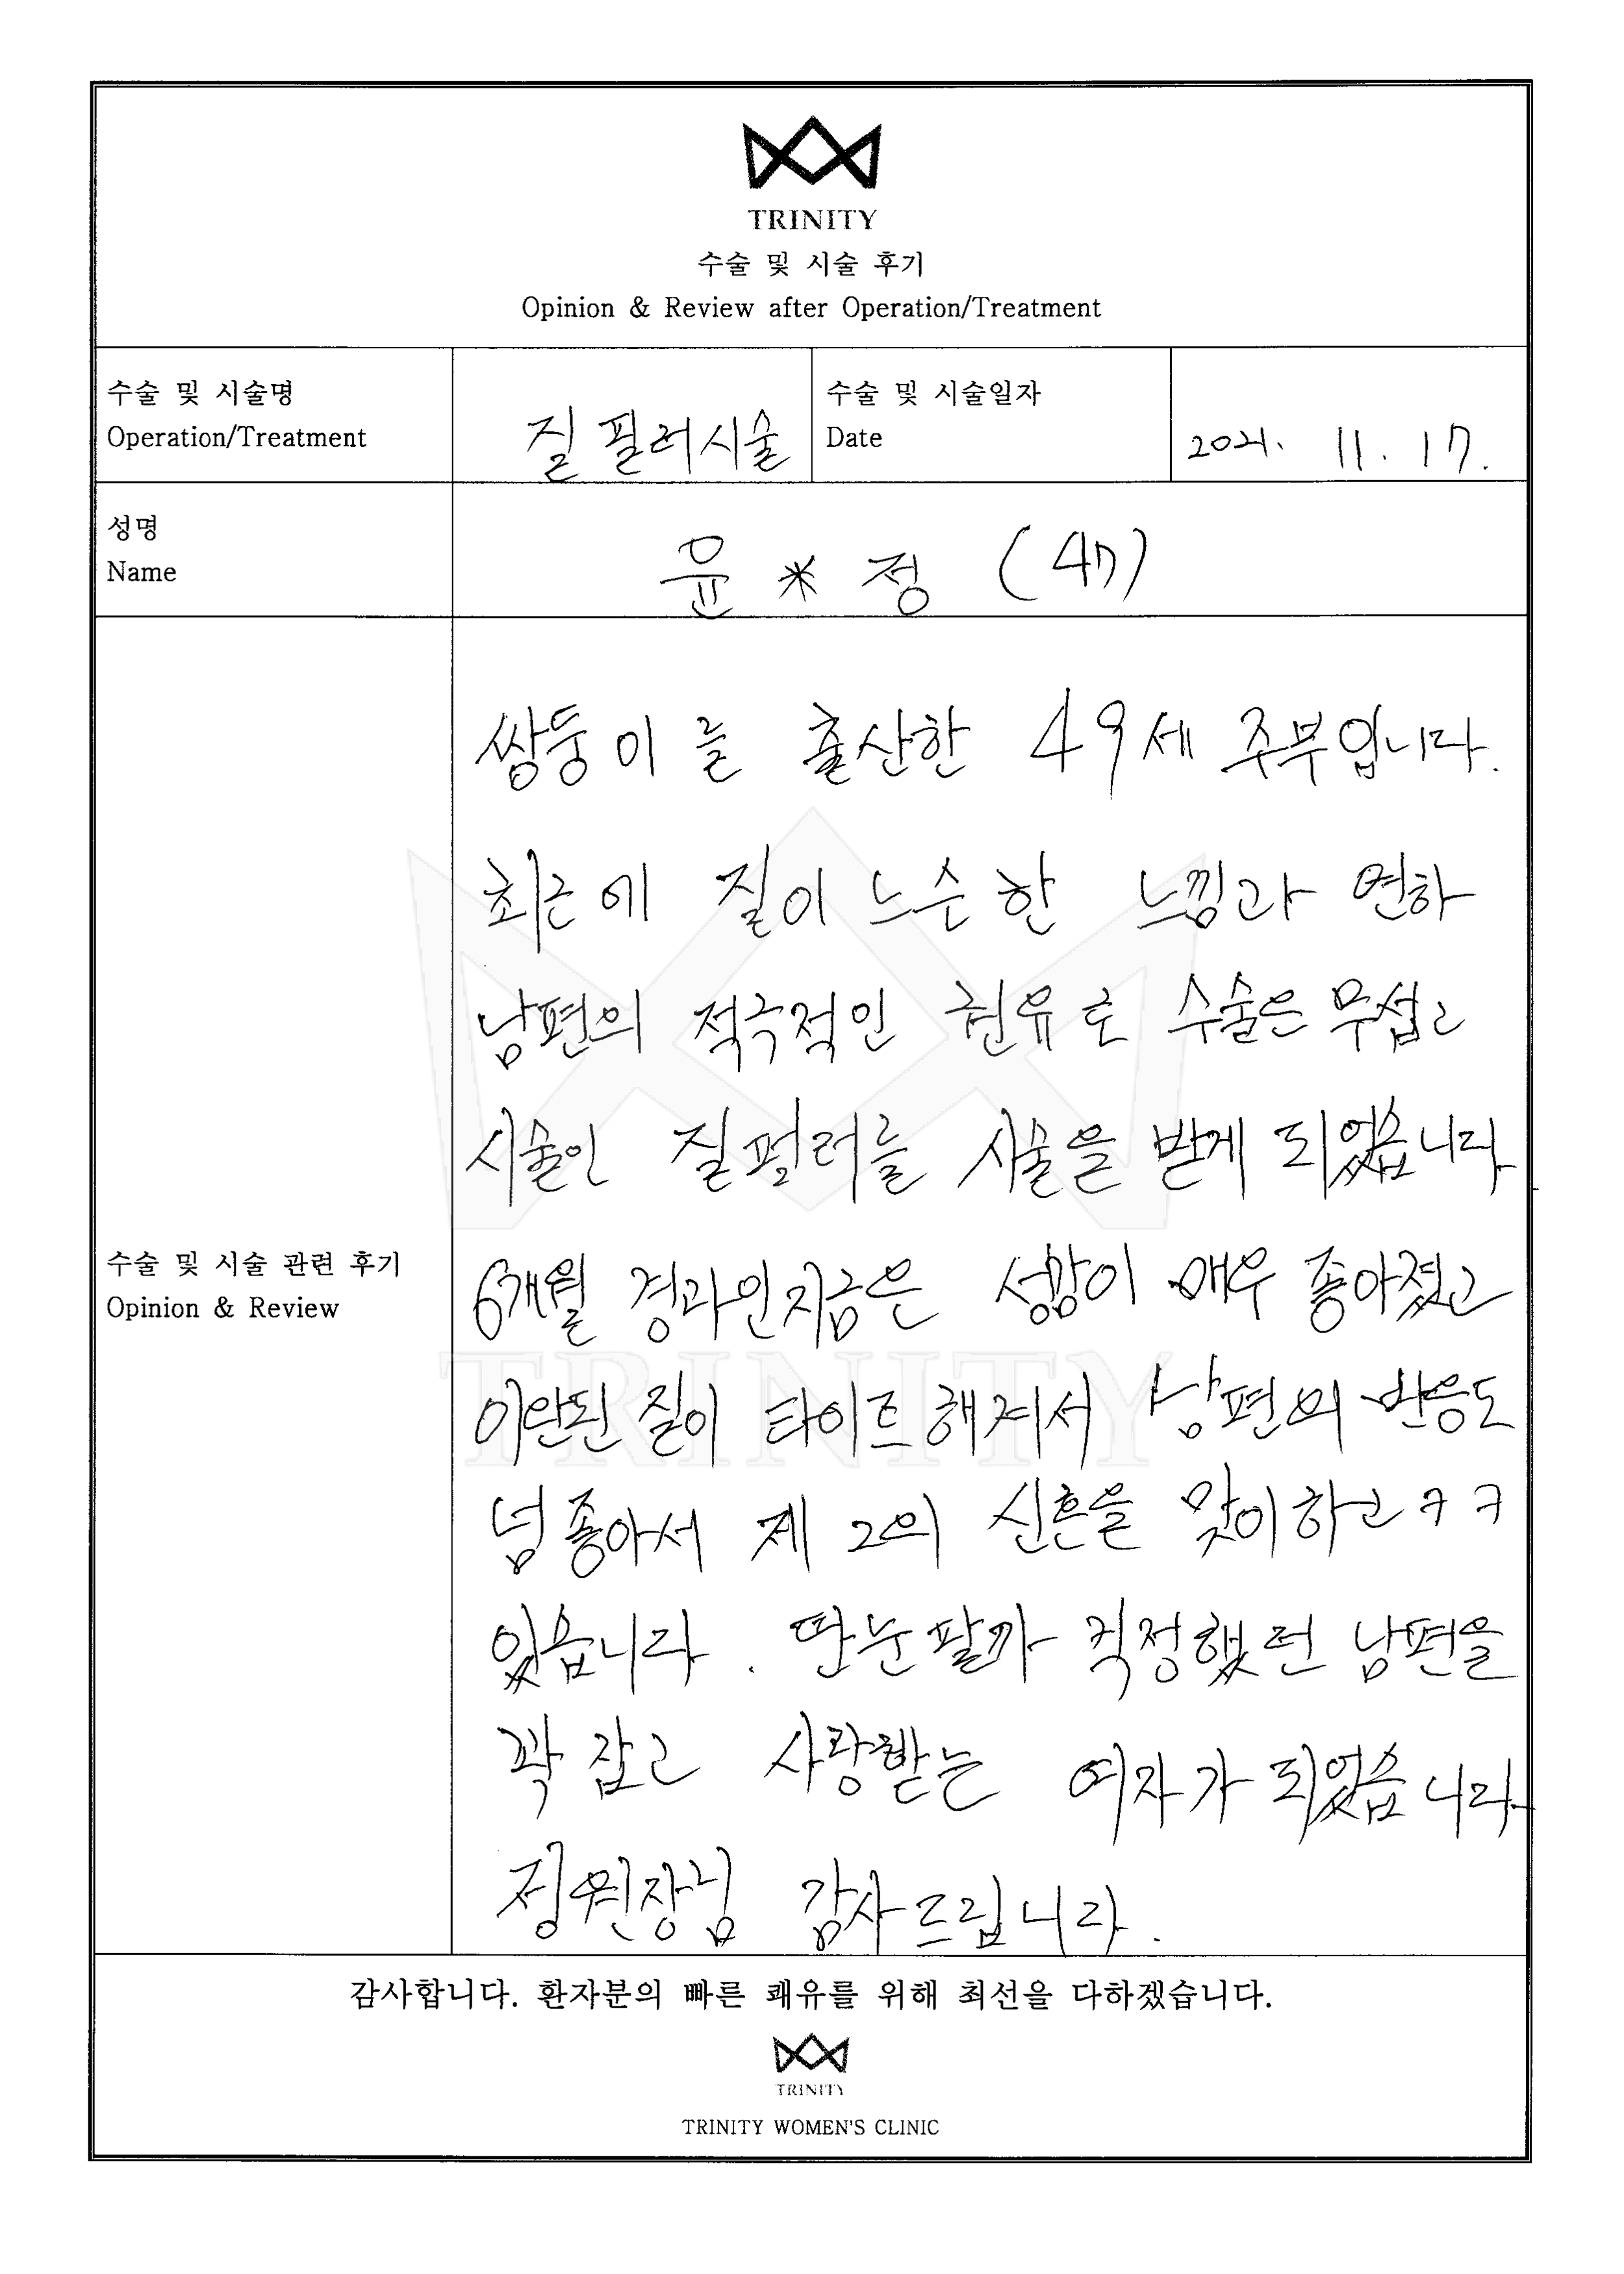 TRINITY
수술 및 시술 후기
Opinion & Review after Operation/Treatment
수술 및 시술명
Operation/Treatment
질 필러시술
수술 및 시술일자
Date
2021. 11. 17.
성명
Name
윤 * 정 (47)
수술 및 시술 관련 후기
Opinion & Review
쌍둥이를 출산한 49세 주부입니다.
최근에 질이 느슨한 느낌과 연하
남편의 적극적인 권유로 수술은 무섭고
시술인 질필러를 시술을 받게 되었습니다
6개월 경과인지금은 성감이 매우 좋아졌고
이완된 질이 타이트해져서 남편의 반응도
넘 좋아서 제 2의 신혼을 맞이하고ㅋㅋ
있습니다. 딴눈팔까 걱정했던 남편을
꽉 잡고 사랑받는 여자가 되었습니다
정원장님 감사드립니다.
TRINITY
감사합니다. 환자분의 빠른 쾌유를 위해 최선을 다하겠습니다.
TRINITY
TRINITY WOMEN'S CLINIC